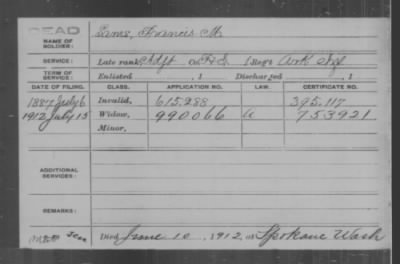 DEAD
NAME OF SOLDIER: Francis M.
SERVICE: Late rank Adjt, 1 Reg't Ark Inf
TERM OF SERVICE: Enlisted , 1 Discharged , 1
DATE OF FILING. CLASS. APPLICATION NO. LAW. CERTIFICATE NO.
1887 July 6 Invalid, 615.288 395.117
1912 July 15 Widow, 990066 a 753921
Minor,
ADDITIONAL SERVICES:
REMARKS:
Died June 10, 1912, at Spokane Wash